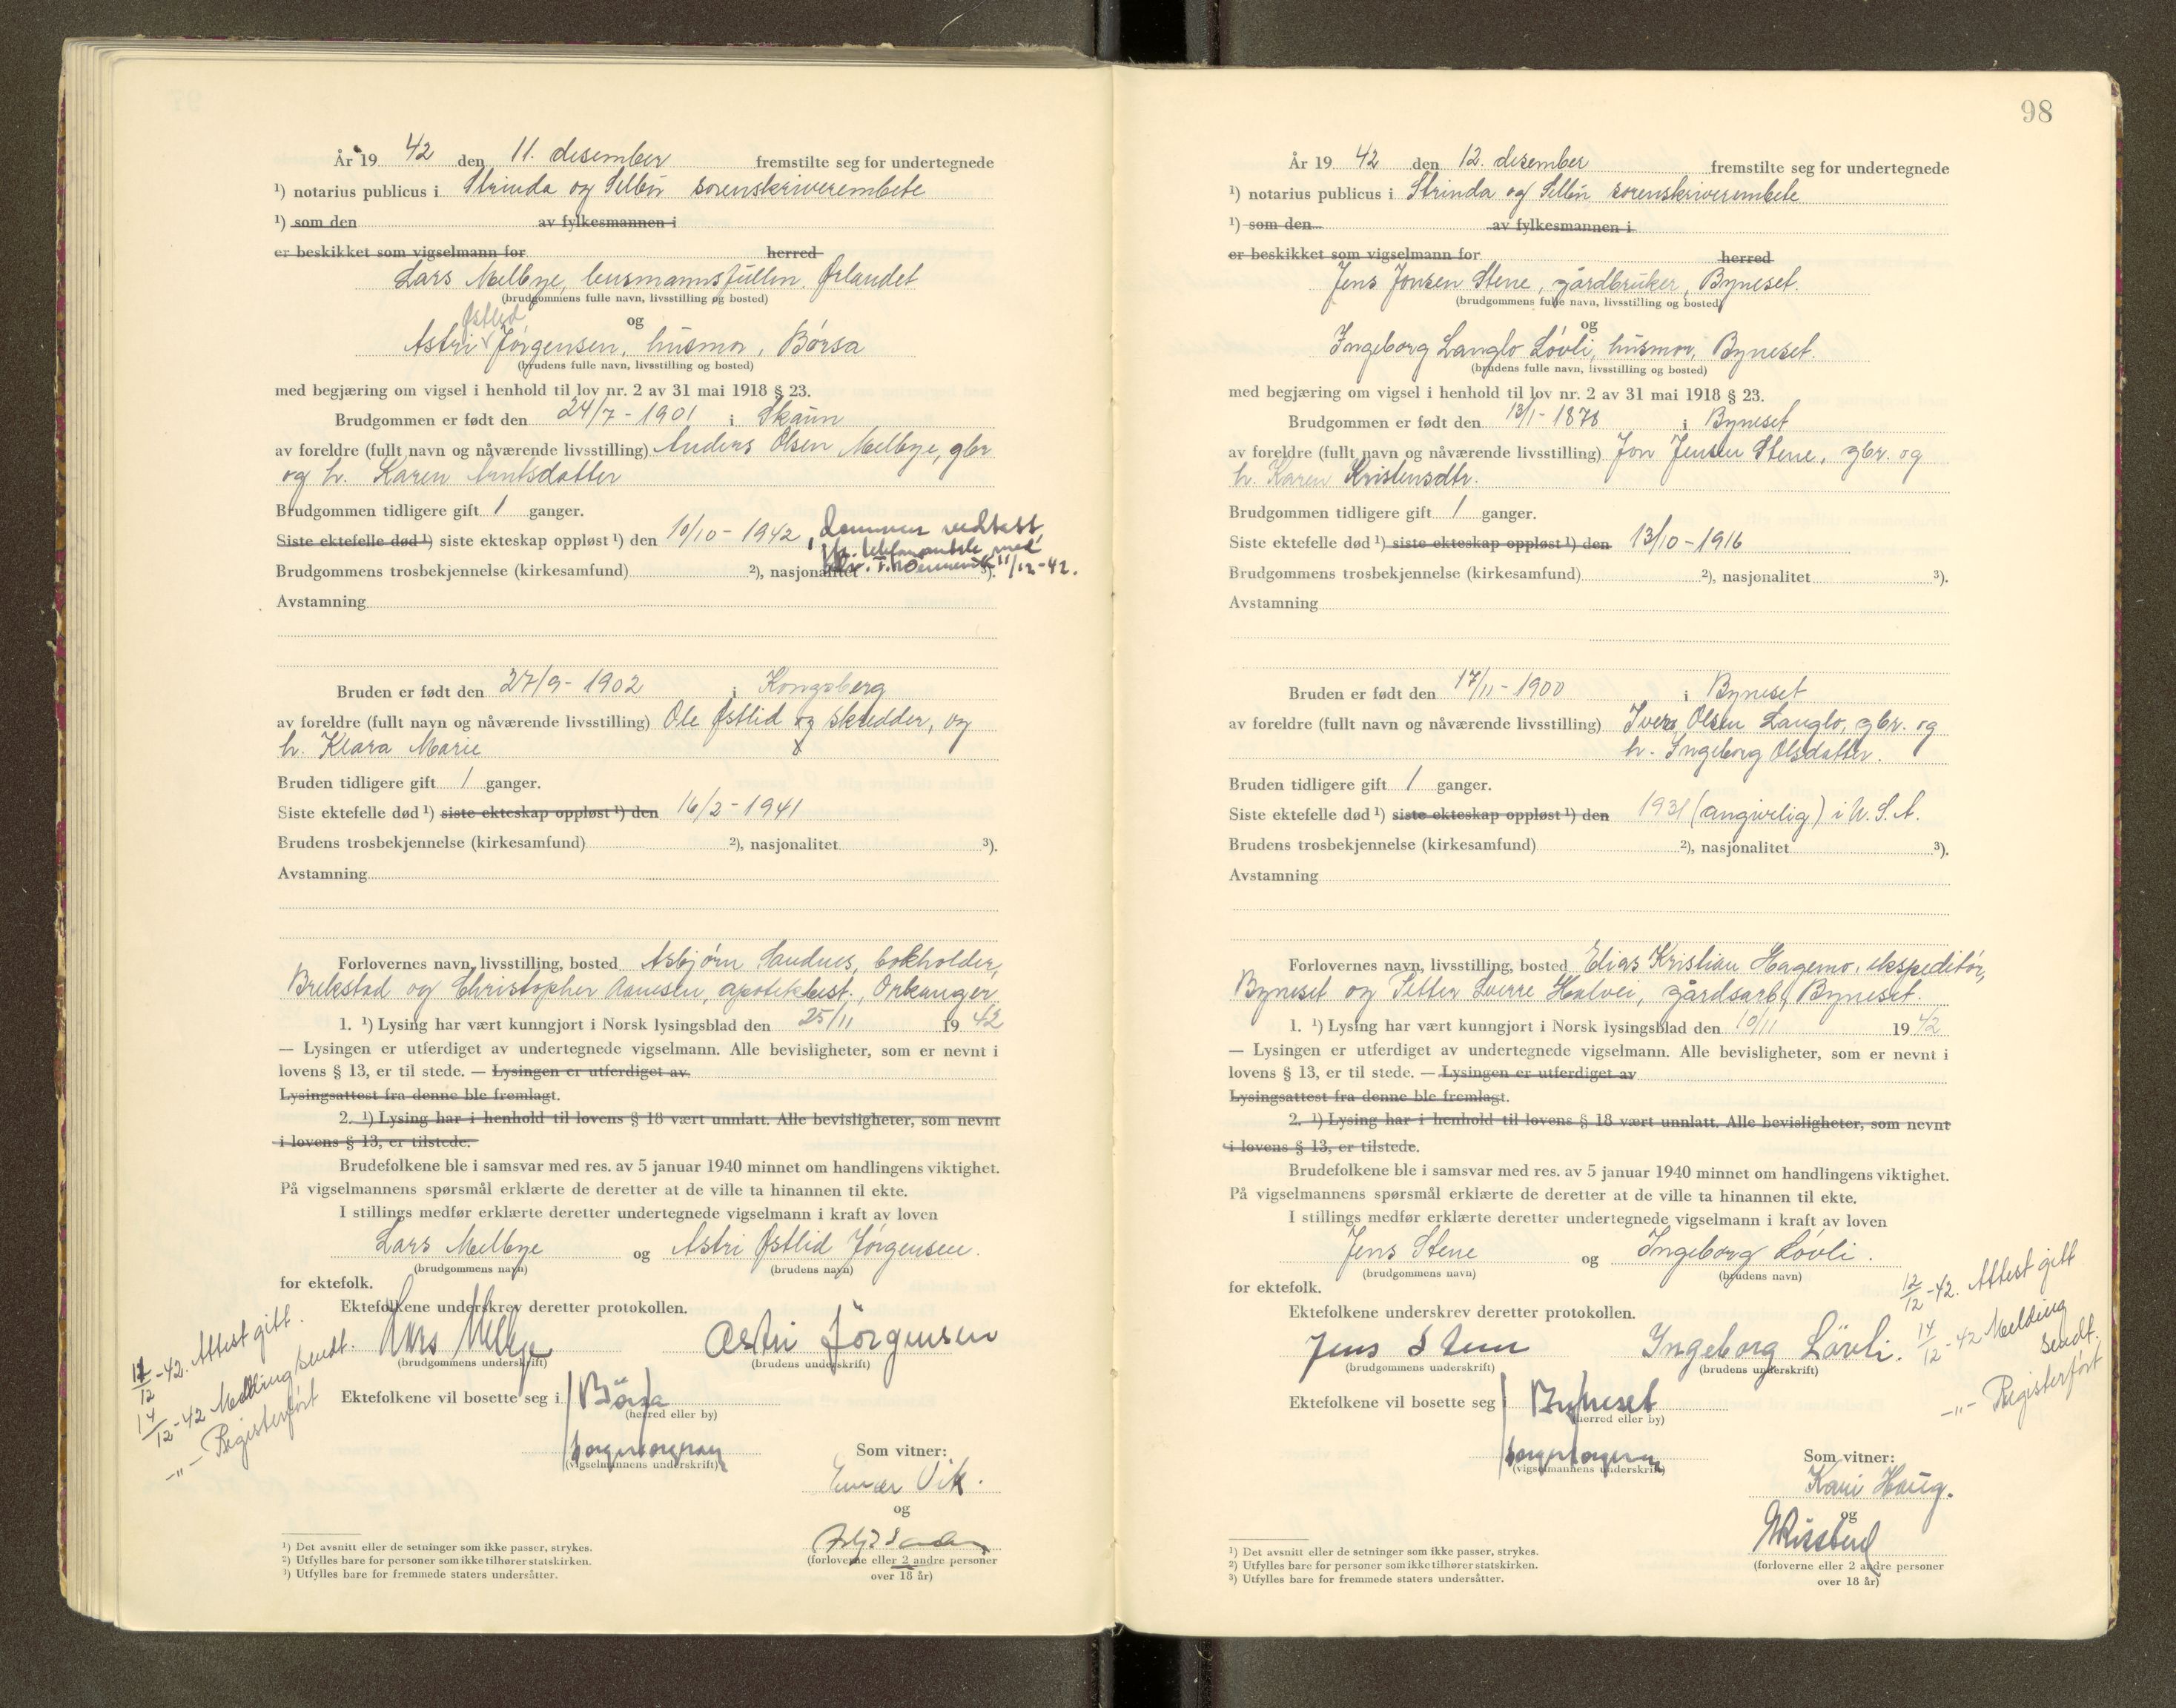 År 19 42 den 11. desember fremstilte seg for undertegnede
¹) notarius publicus i Strinda og Selbu sorenskriverembete
¹) som den av fylkesmannen i
er beskikket som vigselmann for herred
Lars Melbye, lensmannsfullm. Ørlandet
(brudgommens fulle navn, livsstilling og bosted)
og
Østlid
Astri Jörgensen, husmor, Börsa
(brudens fulle navn, livsstilling og bosted)
med begjæring om vigsel i henhold til lov nr. 2 av 31 mai 1918 § 23.
Brudgommen er født den 24/7 - 1901 i Skaun
av foreldre (fullt navn og nåværende livsstilling) Anders Olsen Melbye, gbr
og h. Karen Arntsdatter
Brudgommen tidligere gift 1 ganger.
Siste ektefelle død ¹) siste ekteskap oppløst ¹) den 10/10 - 1942, dommen vedtatt
flg. telefonsamtale med
11/12-42.
Brudgommens trosbekjennelse (kirkesamfund) ²), nasjonalitet ³).
Avstamning
Bruden er født den 27/9 - 1902 i Kongsberg
av foreldre (fullt navn og nåværende livsstilling) Ole Østlid og skredder, og
h. Klara Marie
Bruden tidligere gift 1 ganger.
Siste ektefelle død ¹) siste ekteskap oppløst ¹) den 16/2 - 1941
Brudens trosbekjennelse (kirkesamfund) ²), nasjonalitet ³).
Avstamning
Forlovernes navn, livsstilling, bosted Asbjörn Sandnes, bokholder,
Brekstad og Christopher Aanesen, apotekbest., Orkanger
1. ¹) Lysing har vært kunngjort i Norsk lysingsblad den 25/11 19 42
— Lysingen er utferdiget av undertegnede vigselmann. Alle bevisligheter, som er nevnt i
lovens § 13, er til stede. — Lysingen er utferdiget av
Lysingsattest fra denne ble fremlagt.
2. ¹) Lysing har i henhold til lovens § 18 vært unnlatt. Alle bevisligheter, som nevnt
i lovens § 13, er tilstede.
Brudefolkene ble i samsvar med res. av 5 januar 1940 minnet om handlingens viktighet.
På vigselmannens spørsmål erklærte de deretter at de ville ta hinannen til ekte.
I stillings medfør erklærte deretter undertegnede vigselmann i kraft av loven
Lars Melbye og Astri Østlid Jörgensen.
(brudgommens navn) (brudens navn)
for ektefolk.
Ektefolkene underskrev deretter protokollen.
Lars Melbye Astri Jörgensen
(brudgommens underskrift) (brudens underskrift)
Ektefolkene vil bosette seg i Börsa
(herred eller by)
(vigselmannens underskrift)
12/12-42. Attest gitt.
14/12-42 Melding sendt.
-"- Registerfört
Som vitner:
Einar Vik.
og
(forloverne eller 2 andre personer
over 18 år)
¹) Det avsnitt eller de setninger som ikke passer, strykes.
²) Utfylles bare for personer som ikke tilhører statskirken.
³) Utfylles bare for fremmede staters undersåtter.
98
År 19 42 den 12. desember fremstilte seg for undertegnede
¹) notarius publicus i Strinda og Selbu sorenskriverembete
¹) som den av fylkesmannen i
er beskikket som vigselmann for herred
Jens Jonsen Stene, gårdbruker, Byneset.
(brudgommens fulle navn, livsstilling og bosted)
og
Ingeborg Langlo Lövli, husmor, Byneset.
(brudens fulle navn, livsstilling og bosted)
med begjæring om vigsel i henhold til lov nr. 2 av 31 mai 1918 § 23.
Brudgommen er født den 13/1 - 1878 i Byneset
av foreldre (fullt navn og nåværende livsstilling) Jon Jensen Stene, gbr. og
h. Karen Kristensdtr.
Brudgommen tidligere gift 1 ganger.
Siste ektefelle død ¹) siste ekteskap oppløst ¹) den 13/10 - 1916
Brudgommens trosbekjennelse (kirkesamfund) ²), nasjonalitet ³).
Avstamning
Bruden er født den 17/11 - 1900 i Byneset
av foreldre (fullt navn og nåværende livsstilling) Iver Olsen Langlo, gbr. og
h. Ingeborg Olsdatter.
Bruden tidligere gift 1 ganger.
Siste ektefelle død ¹) siste ekteskap oppløst ¹) den 1931 (angivelig) i U.S.A.
Brudens trosbekjennelse (kirkesamfund) ²), nasjonalitet ³).
Avstamning
Forlovernes navn, livsstilling, bosted Elias Kristian Hagemo, ekspeditör,
Byneset og Petter Sverre Halvei, gårdsarb., Byneset.
1. ¹) Lysing har vært kunngjort i Norsk lysingsblad den 10/11 19 42
— Lysingen er utferdiget av undertegnede vigselmann. Alle bevisligheter, som er nevnt i
lovens § 13, er til stede. — Lysingen er utferdiget av
Lysingsattest fra denne ble fremlagt.
2. ¹) Lysing har i henhold til lovens § 18 vært unnlatt. Alle bevisligheter, som nevnt
i lovens § 13, er tilstede.
Brudefolkene ble i samsvar med res. av 5 januar 1940 minnet om handlingens viktighet.
På vigselmannens spørsmål erklærte de deretter at de ville ta hinannen til ekte.
I stillings medfør erklærte deretter undertegnede vigselmann i kraft av loven
Jens Stene og Ingeborg Lövli.
(brudgommens navn) (brudens navn)
for ektefolk.
Ektefolkene underskrev deretter protokollen.
Jens Stene Ingeborg Lövli.
(brudgommens underskrift) (brudens underskrift)
Ektefolkene vil bosette seg i Byneset
(herred eller by)
(vigselmannens underskrift)
12/12-42. Attest gitt
14/12-42 Melding sendt.
-"- Registerfört
Som vitner:
Kari Haug.
og
(forloverne eller 2 andre personer
over 18 år)
¹) Det avsnitt eller de setninger som ikke passer, strykes.
²) Utfylles bare for personer som ikke tilhører statskirken.
³) Utfylles bare for fremmede staters undersåtter.